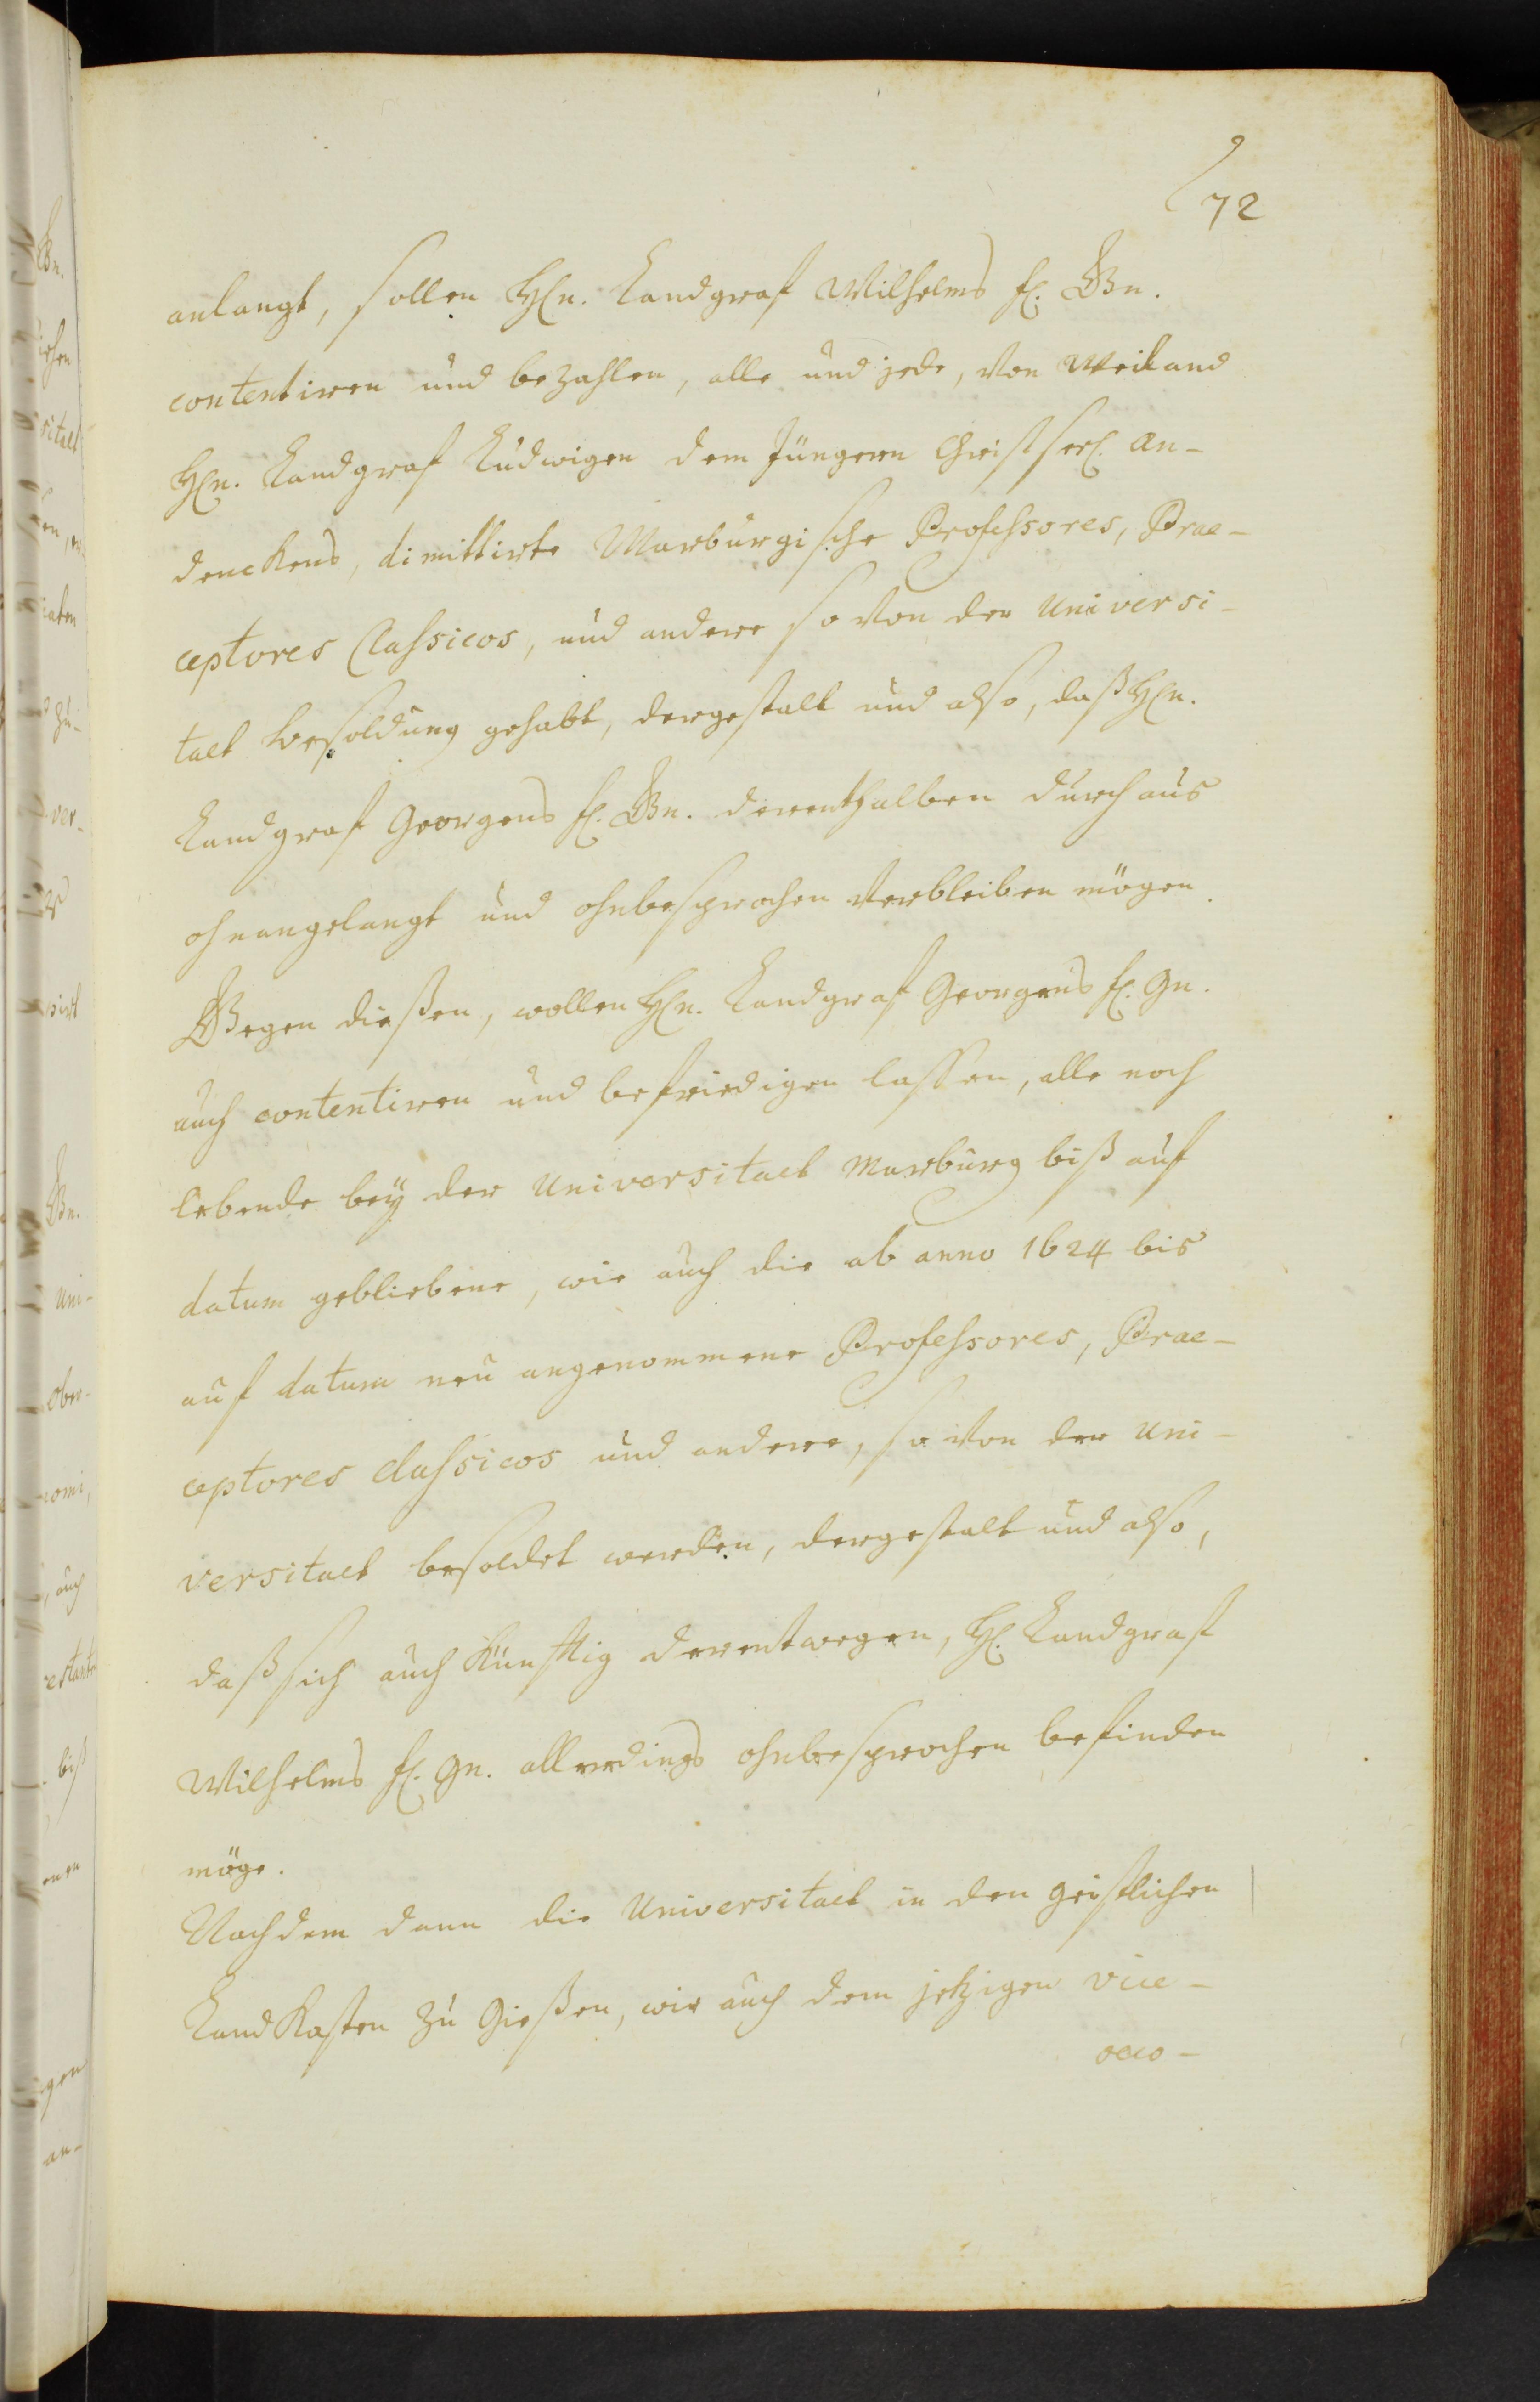 72
anlangt, sollen Hn. Landgraf Wilhelms fl. Gn.
contentiren und bezahlen, alle und jede, von Weiland
Hn. Landgraf Ludwigen dem Jüngern Christseel. An-
denckens, dimittirte Marburgische Professores, Prae-
ceptores Classicos, und andere so von der Universi-
taet besoldung gehabt, dergestalt und also, daß Hn.
Landgraf Georgens fl. Gn. derenthalben durchaus
ohnangelangt und ohnbesprochen verbleiben mögen.
Gegen dießen, wollen Hn. Landgraf Georgens fl. Gn.
auch contentiren und befriedigen lassen, alle noch
lebende bey der Universitaet Marburg biß auf
datum gebliebene, wie auch die ab anno 1624 bis
auf datum neu angenommene Professores, Prae-
ceptores classicos und andere, so von der Uni-
versitaet besoldet werden, dergestalt und also,
daß sich auch Künfftig derentwegen, Hl. Landgraf
Wilhelms fl. Gn. allerdings ohnbesprochen befinden
möge.
Nachdem dann die Universitaet in den geistlichen
Land Kasten zu Gießen, wie auch dem jetzigen vice-
oeco-